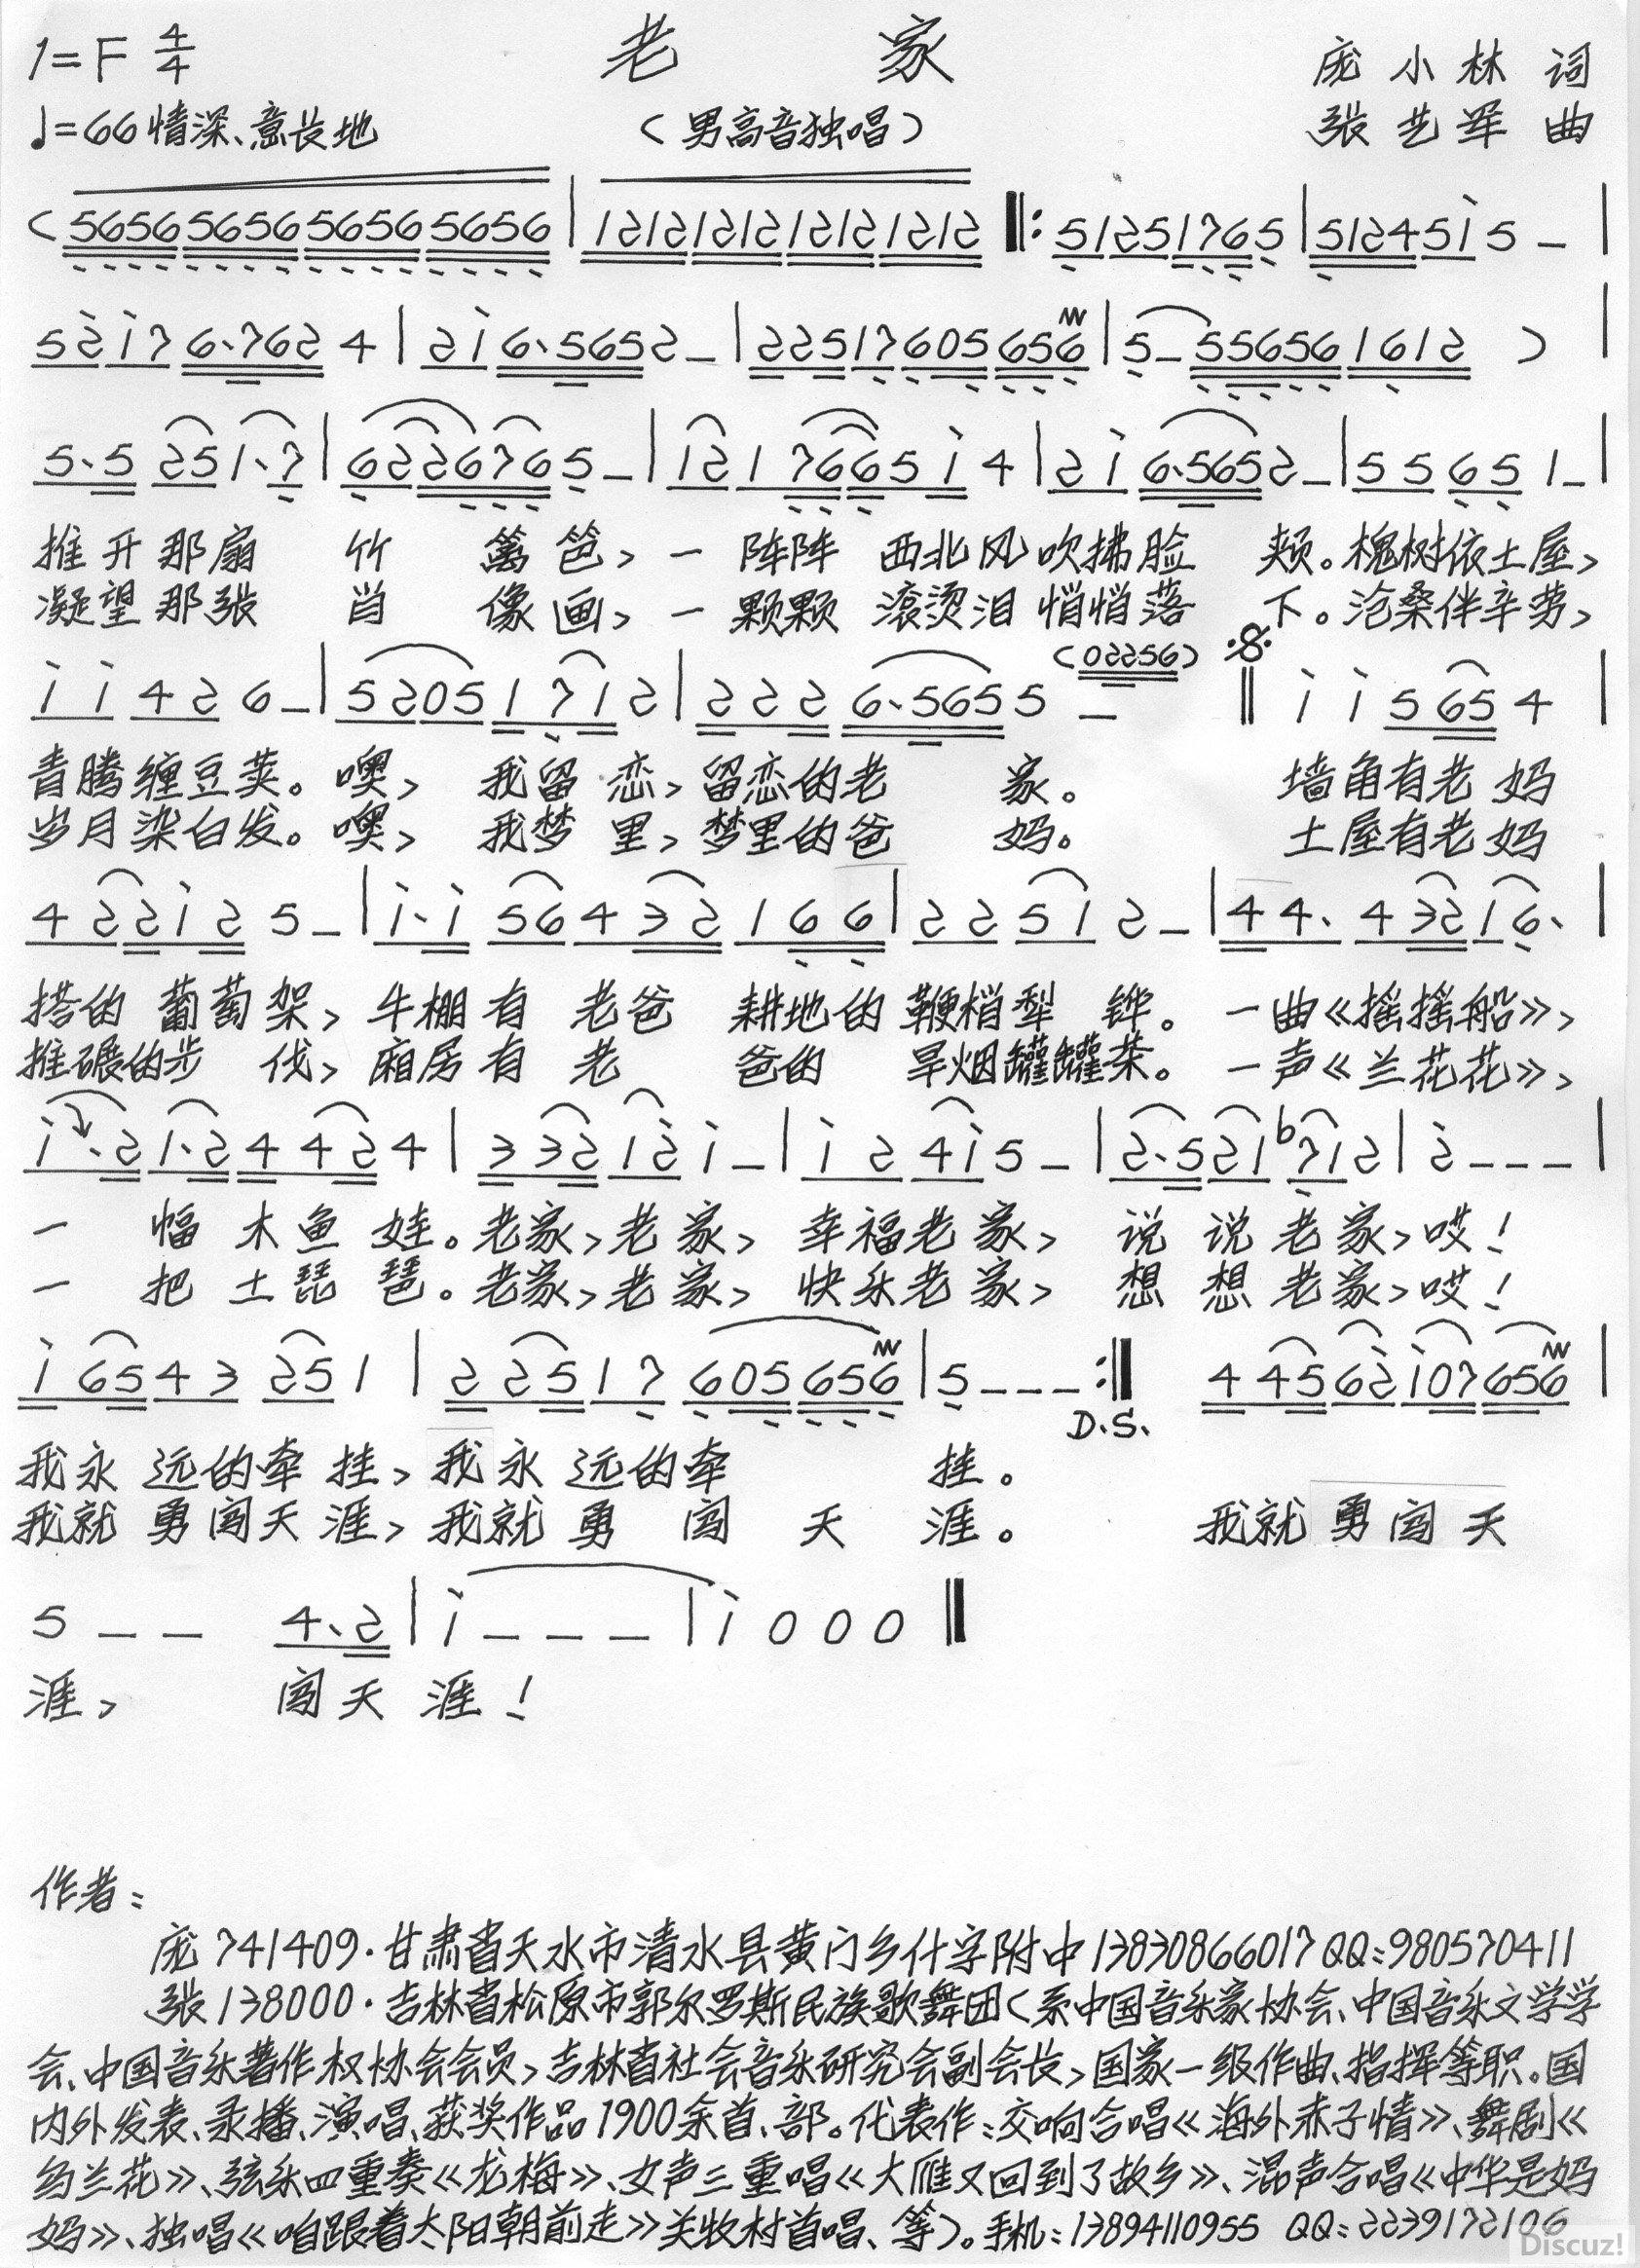 1=F 4/4
老 家
庞小林 词
♩=66 情深、意长地
(男高音独唱)
张艺军 曲
(5656 5656 5656 5656 | 1212 1212 1212 1212 ‖: 5125 1765 | 5124 51 5 – |
52 17 6·762 4 | 21 6·565 2 – | 225 17 605 656 | 5 – 55656 1612 ) |
5·5 25 1·7 | 622676 5 – | 12 1 766 5 1 4 | 21 6·565 2 – | 55 65 1 – |
推开那扇 竹 篱笆,一 阵阵 西北风吹拂脸 颊。槐树依土屋,
凝望那张 肖 像画,一 颗颗 滚烫泪悄悄落 下。沧桑伴辛劳,
(02256)
11 42 6 – | 5205 1 71 2 | 222 6·565 5 – ‖ 1 1 5 65 4 |
青腾缠豆荚。噢, 我留恋,留恋的老 家。 墙角有老妈
岁月染白发。噢, 我梦里,梦里的爸 妈。 土屋有老妈
4 2212 5 – | 1·1 56 4 32 1 66 | 22 51 2 – | 44· 4 32 16· |
搭的葡萄架,牛棚有 老爸 耕地的鞭梢犁 铧。一曲《摇摇船》,
推碾的步 伐,厢房有 老 爸的 旱烟罐罐茶。一声《兰花花》,
1·2 1·2 4 42 4 | 3 32 12 1 – | 1 2 41 5 – | 2·5 21 b71 2 | 2 – – – |
一 幅 木鱼 娃。老家,老家, 幸福老家, 说 说 老家,哎!
一 把 土琵 琶。老家,老家, 快乐老家, 想 想 老家,哎!
1 65 43 25 1 | 2 25 17 605 656 | 5 – – – :‖ 4 45 62 107 656 |
D.S.
我永远的牵挂,我永远的牵 挂。
我就勇闯天涯,我就勇 闯 天 涯。 我就勇闯天
5 – – 4·2 | 1 – – – | 1 0 0 0 ‖
涯, 闯天 涯!
作者:
庞741409·甘肃省天水市清水县黄门乡什字附中13830866017 QQ:980570411
张138000·吉林省松原市郭尔罗斯民族歌舞团(系中国音乐家协会、中国音乐文学学
会、中国音乐著作权协会会员,吉林省社会音乐研究会副会长,国家一级作曲、指挥等职。国
内外发表、录播、演唱、获奖作品1900余首、部。代表作:交响合唱《海外赤子情》、舞剧《
约兰花》、弦乐四重奏《龙梅》、女声三重唱《大雁又回到了故乡》、混声合唱《中华是妈
妈》、独唱《咱跟着太阳朝前走》关牧村首唱、等)。手机:13894110955 QQ:2239172106
Discuz!